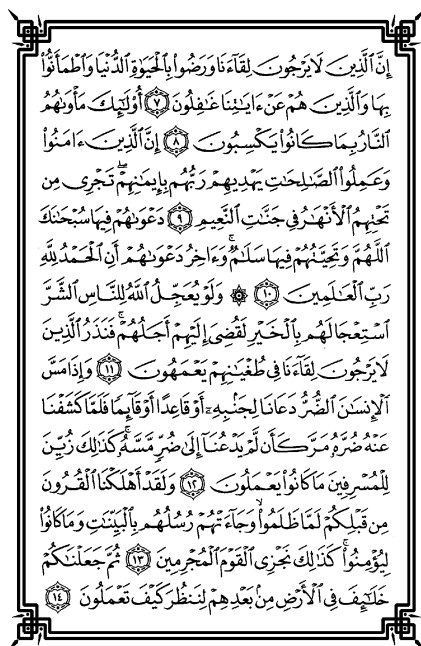 إِنَّ ٱلَّذِينَ لَا يَرْجُونَ لِقَآءَنَا وَرَضُوا۟ بِٱلْحَيَوٰةِ ٱلدُّنْيَا وَٱطْمَأَنُّوا۟
بِهَا وَٱلَّذِينَ هُمْ عَنْ ءَايَٰتِنَا غَٰفِلُونَ ٧ أُو۟لَٰٓئِكَ مَأْوَىٰهُمُ
ٱلنَّارُ بِمَا كَانُوا۟ يَكْسِبُونَ ٨ إِنَّ ٱلَّذِينَ ءَامَنُوا۟
وَعَمِلُوا۟ ٱلصَّٰلِحَٰتِ يَهْدِيهِمْ رَبُّهُم بِإِيمَٰنِهِمْ ۖ تَجْرِى مِن
تَحْتِهِمُ ٱلْأَنْهَٰرُ فِى جَنَّٰتِ ٱلنَّعِيمِ ٩ دَعْوَىٰهُمْ فِيهَا سُبْحَٰنَكَ
ٱللَّهُمَّ وَتَحِيَّتُهُمْ فِيهَا سَلَٰمٌ ۚ وَءَاخِرُ دَعْوَىٰهُمْ أَنِ ٱلْحَمْدُ لِلَّهِ
رَبِّ ٱلْعَٰلَمِينَ ١٠ ۞ وَلَوْ يُعَجِّلُ ٱللَّهُ لِلنَّاسِ ٱلشَّرَّ
ٱسْتِعْجَالَهُم بِٱلْخَيْرِ لَقُضِىَ إِلَيْهِمْ أَجَلُهُمْ ۖ فَنَذَرُ ٱلَّذِينَ
لَا يَرْجُونَ لِقَآءَنَا فِى طُغْيَٰنِهِمْ يَعْمَهُونَ ١١ وَإِذَا مَسَّ
ٱلْإِنسَٰنَ ٱلضُّرُّ دَعَانَا لِجَنۢبِهِۦٓ أَوْ قَاعِدًا أَوْ قَآئِمًا فَلَمَّا كَشَفْنَا
عَنْهُ ضُرَّهُۥ مَرَّ كَأَن لَّمْ يَدْعُنَآ إِلَىٰ ضُرٍّ مَّسَّهُۥ ۚ كَذَٰلِكَ زُيِّنَ
لِلْمُسْرِفِينَ مَا كَانُوا۟ يَعْمَلُونَ ١٢ وَلَقَدْ أَهْلَكْنَا ٱلْقُرُونَ
مِن قَبْلِكُمْ لَمَّا ظَلَمُوا۟ ۙ وَجَآءَتْهُمْ رُسُلُهُم بِٱلْبَيِّنَٰتِ وَمَا كَانُوا۟
لِيُؤْمِنُوا۟ ۚ كَذَٰلِكَ نَجْزِى ٱلْقَوْمَ ٱلْمُجْرِمِينَ ١٣ ثُمَّ جَعَلْنَٰكُمْ
خَلَٰٓئِفَ فِى ٱلْأَرْضِ مِنۢ بَعْدِهِمْ لِنَنظُرَ كَيْفَ تَعْمَلُونَ ١٤